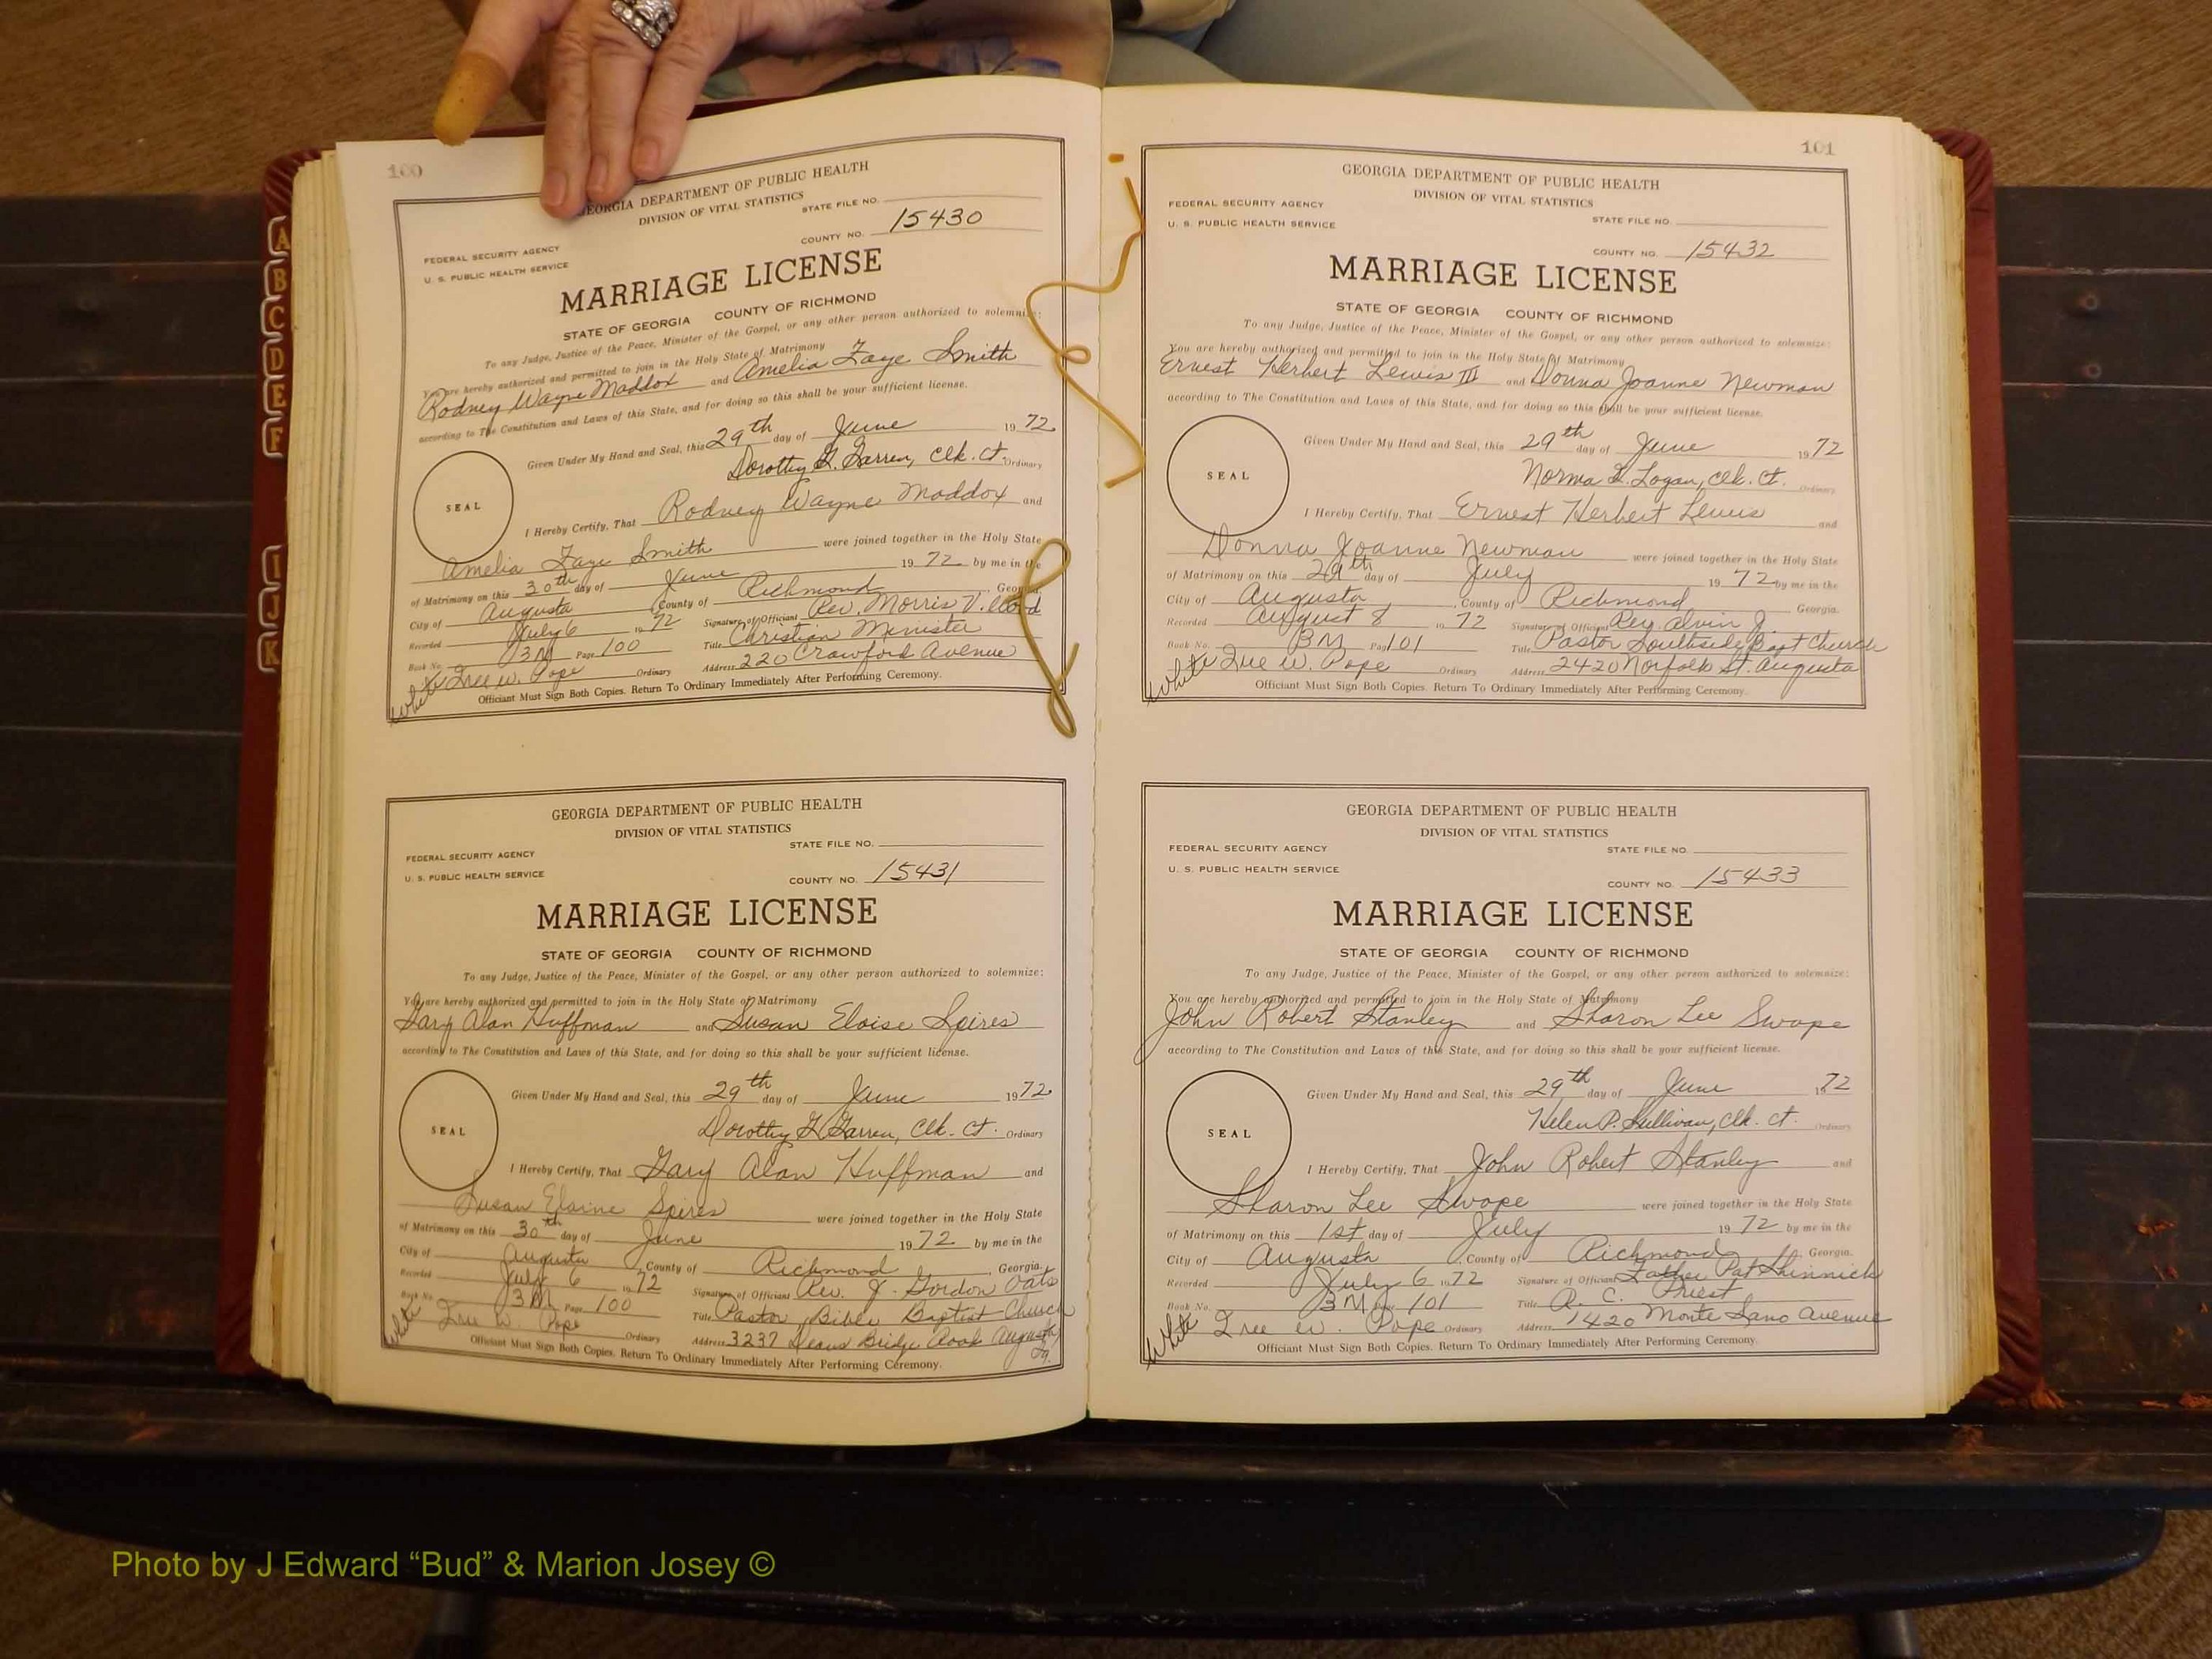 A
B
C
D
E
F
I
J
K
100
GEORGIA DEPARTMENT OF PUBLIC HEALTH
DIVISION OF VITAL STATISTICS
STATE FILE NO.
COUNTY NO. 15430
FEDERAL SECURITY AGENCY
U. S. PUBLIC HEALTH SERVICE
MARRIAGE LICENSE
STATE OF GEORGIA COUNTY OF RICHMOND
To any Judge, Justice of the Peace, Minister of the Gospel, or any other person authorized to solemnize:
You are hereby authorized and permitted to join in the Holy State of Matrimony
Rodney Wayne Maddox and Amelia Faye Smith
according to The Constitution and Laws of this State, and for doing so this shall be your sufficient license.
Given Under My Hand and Seal, this 29th day of June 1972
Dorothy G. Garren, Clk. Ct. Ordinary
SEAL
I Hereby Certify, That Rodney Wayne Maddox and
Amelia Faye Smith were joined together in the Holy State
of Matrimony on this 30th day of June 1972 by me in the
City of Augusta County of Richmond, Georgia.
Recorded July 6 1972 Signature of Official Rev. Morris V.
Book No. 3M Page 100 Title Christian Minister
White Iree W. Pope Ordinary Address 220 Crawford Avenue
Officiant Must Sign Both Copies. Return To Ordinary Immediately After Performing Ceremony.
GEORGIA DEPARTMENT OF PUBLIC HEALTH
DIVISION OF VITAL STATISTICS
STATE FILE NO.
FEDERAL SECURITY AGENCY
U. S. PUBLIC HEALTH SERVICE
COUNTY NO. 15431
MARRIAGE LICENSE
STATE OF GEORGIA COUNTY OF RICHMOND
To any Judge, Justice of the Peace, Minister of the Gospel, or any other person authorized to solemnize:
You are hereby authorized and permitted to join in the Holy State of Matrimony
Gary Alan Huffman and Susan Eloise Spires
according to The Constitution and Laws of this State, and for doing so this shall be your sufficient license.
Given Under My Hand and Seal, this 29th day of June 1972
Dorothy G. Garren, Clk. Ct. Ordinary
SEAL
I Hereby Certify, That Gary Alan Huffman and
Susan Elaine Spires were joined together in the Holy State
of Matrimony on this 30th day of June 1972 by me in the
City of Augusta, County of Richmond, Georgia.
Recorded July 6 1972 Signature of Official Rev. J. Gordon Oats
Book No. 3M Page 100 Title Pastor Bible Baptist Church
White Iree W. Pope Ordinary Address 3237 Deans Bridge Road Augusta, Ga.
Officiant Must Sign Both Copies. Return To Ordinary Immediately After Performing Ceremony.
101
GEORGIA DEPARTMENT OF PUBLIC HEALTH
DIVISION OF VITAL STATISTICS
FEDERAL SECURITY AGENCY
U. S. PUBLIC HEALTH SERVICE
STATE FILE NO.
COUNTY NO. 15432
MARRIAGE LICENSE
STATE OF GEORGIA COUNTY OF RICHMOND
To any Judge, Justice of the Peace, Minister of the Gospel, or any other person authorized to solemnize:
You are hereby authorized and permitted to join in the Holy State of Matrimony
Ernest Herbert Lewis III and Donna Joanne Newman
according to The Constitution and Laws of this State, and for doing so this shall be your sufficient license.
Given Under My Hand and Seal, this 29th day of June 1972
Norma L. Logan, Clk. Ct. Ordinary
SEAL
I Hereby Certify, That Ernest Herbert Lewis and
Donna Joanne Newman were joined together in the Holy State
of Matrimony on this 29th day of July 1972 by me in the
City of Augusta, County of Richmond Georgia.
Recorded August 8 1972 Signature of Official Rev. Alvin J.
Book No. 3M Page 101 Title Pastor Southside Bapt Church
White Iree W. Pope Ordinary Address 2420 Norfolk St. Augusta
Officiant Must Sign Both Copies. Return To Ordinary Immediately After Performing Ceremony.
GEORGIA DEPARTMENT OF PUBLIC HEALTH
DIVISION OF VITAL STATISTICS
FEDERAL SECURITY AGENCY
STATE FILE NO.
U. S. PUBLIC HEALTH SERVICE
COUNTY NO. 15433
MARRIAGE LICENSE
STATE OF GEORGIA COUNTY OF RICHMOND
To any Judge, Justice of the Peace, Minister of the Gospel, or any other person authorized to solemnize:
You are hereby authorized and permitted to join in the Holy State of Matrimony
John Robert Stanley and Sharon Lee Swope
according to The Constitution and Laws of this State, and for doing so this shall be your sufficient license.
Given Under My Hand and Seal, this 29th day of June 1972
Helen P. Sullivan, Clk. Ct. Ordinary
SEAL
I Hereby Certify, That John Robert Stanley and
Sharon Lee Swope were joined together in the Holy State
of Matrimony on this 1st day of July 1972 by me in the
City of Augusta, County of Richmond, Georgia.
Recorded July 6 1972 Signature of Official Father Pat Shinnick
Book No. 3M Page 101 Title R. C. Priest
White Iree W. Pope Ordinary Address 1420 Monte Sano Avenue
Officiant Must Sign Both Copies. Return To Ordinary Immediately After Performing Ceremony.
Photo by J Edward “Bud” & Marion Josey ©